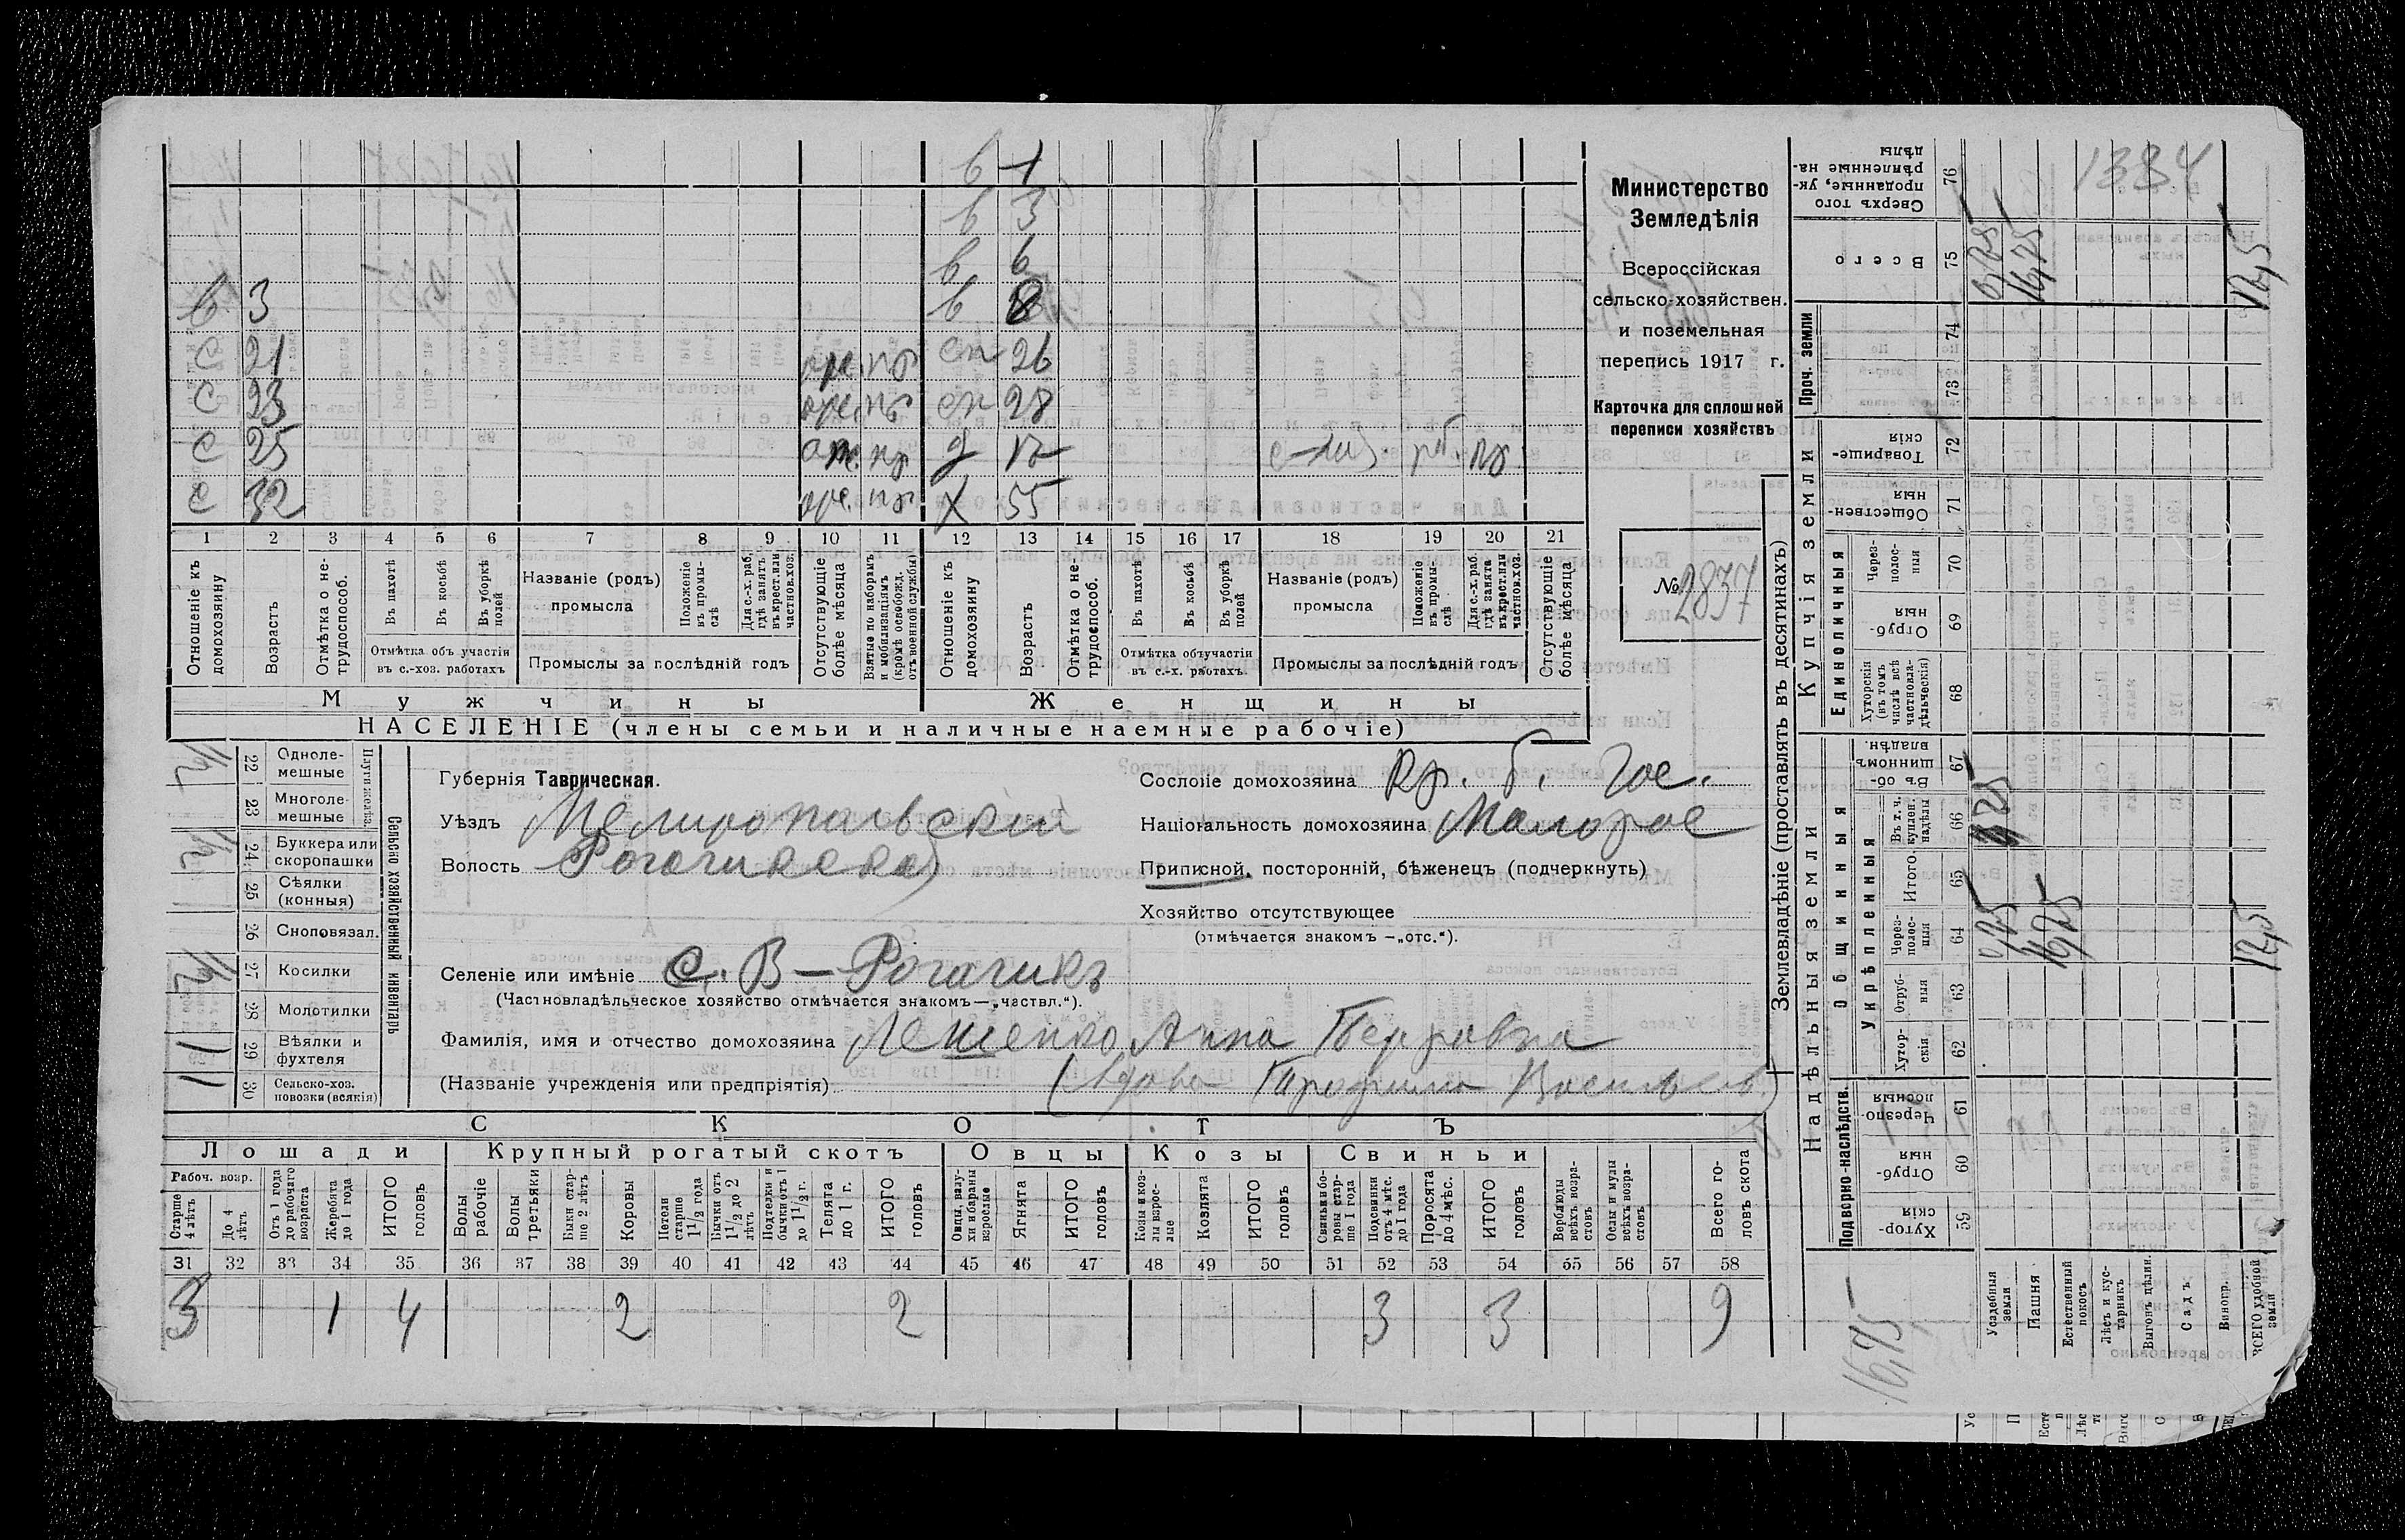 в 1
в 3
в 6
в 3 в 8
с 21 арм. пр сн 26
с 23 арм. пр сн 28
с 25 арм. пр д 12 рб.
с 32 арм. пр Х 55
1 2 3 4 5 6 7 8 9 10 11 12 13 14 15 16 17 18 19 20 21
Отношеніе къ домохозяину
Возрастъ
Отмѣтка о не-трудоспособ.
Въ пахотѣ
Въ косьбѣ
Въ уборкѣ полей
Отмѣтка объ участіи
въ с.-хоз. работахъ
Названіе (родъ)
промысла
Положеніе въ промы-слѣ
Для с.-х. раб. гдѣ занятъ въ крест. или частнов. хоз.
Промыслы за послѣдній годъ
Отсутствующіе болѣе мѣсяца
Взятые по наборамъ и мобилизаціямъ (кромѣ освобожд. отъ военной службы)
Отношеніе къ домохозяину
Возрастъ
Отмѣтка о не-трудоспособ.
Въ пахотѣ
Въ косьбѣ
Въ уборкѣ полей
Отмѣтка объ участіи
въ с.-х. работахъ
Названіе (родъ)
промысла
Положеніе въ промы-слѣ
Для с.-х. раб. гдѣ занята въ крест. или частнов. хоз.
Промыслы за послѣдній годъ
Отсутствующіе болѣе мѣсяца
Мужчины Женщины
НАСЕЛЕНІЕ (члены семьи и наличные наемные рабочіе)
Министерство
Земледѣлія
Всероссійская
сельско-хозяйствен.
и поземельная
перепись 1917 г.
Карточка для сплошней
переписи хозяйствъ
№ 2837
Сельско хозяйственный инвентарь
Плуги желѣз.
22 Одноле-мешные 1/2
23 Многоле-мешные
24 Буккера или скоропашки 1/2
25 Сѣялки (конныя)
26 Сноповязал.
27 Косилки 1/2
28 Молотилки
29 Вѣялки и фухтеля 1
30 Сельско-хоз. повозки (всякія) 1
Губернія Таврическая.
Уѣздъ Мелитопольскій
Волость Рогачикская
Селеніе или имѣніе с. В-Рогачикъ
(Частновладѣльческое хозяйство отмѣчается знакомъ—„частвл.“).
Фамилія, имя и отчество домохозяина Лещенко Анна Петровна
(Названіе учрежденія или предпріятія) (вдова Трофима Васильев.)
Сословіе домохозяина кр. б. гос.
Національность домохозяина Малорос
Приписной, посторонній, бѣженецъ (подчеркнуть)
Хозяйство отсутствующее
(отмѣчается знакомъ —„отс.“).
СКОТЪ
Лошади Крупный рогатый скотъ Овцы Козы Свиньи
Рабоч. возр.
Старше 4 лѣтъ
До 4 лѣтъ
Отъ 1 года до рабочаго возраста
Жеребята до 1 года
ИТОГО головъ
Волы рабочіе
Волы третьяки
Быки стар-ше 2 лѣтъ
Коровы
Нетели старше 1 1/2 года
Бычки отъ 1 1/2 до 2 лѣтъ
Подтелки и бычки отъ 1 до 1 1/2 г.
Телята до 1 г.
ИТОГО головъ
Овцы, валу-хи и бараны взрослые
Ягнята
ИТОГО головъ
Козы и коз-лы взрос-лые
Козлята
ИТОГО головъ
Свиньи и бо-ровы стар-ше 1 года
Подсвинки отъ 4 мѣс. до 1 года
Поросята до 4 мѣс.
ИТОГО головъ
Верблюды всѣхъ возра-стовъ
Ослы и мулы всѣхъ возра-стовъ
Всего го-ловъ скота
31 32 33 34 35 36 37 38 39 40 41 42 43 44 45 46 47 48 49 50 51 52 53 54 55 56 57 58
3 1 4 2 2 3 3 9
Землевладѣніе (проставлять въ десятинахъ)
Надѣльныя земли Купчія земли Проч. земли
Подворно-наслѣдств.
Общинныя
Укрѣпленныя
Единоличныя
Хутор-скія 59
Отруб-ныя 60
Черезпо-лосныя 61
Хутор-скія 62
Отруб-ныя 63
Через-полос-ныя 64
Итого 65
Въ т. ч. куплен. надѣлы 66
Въ об-щинномъ владѣн. 67
Хуторскія (въ томъ числѣ всѣ частновла-дѣльческія) 68
Отруб-ныя 69
Через-полос-ныя 70
Обществен-ныя 71
Товарище-скія 72
73
74
Всего 75
Сверхъ того проданные, ук-рѣпленные на-дѣлы 76
1334
Усадебныя земли
Пашня 16,25 16,25
Естественный покосъ
Лѣсъ и кус-тарникъ
Выгонъ цѣлин.
Садъ
Виногр.
ВСЕГО удобной земли